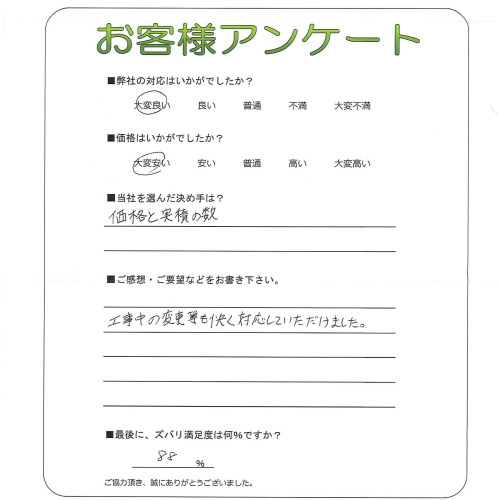 お客様アンケート
■弊社の対応はいかがでしたか？
大変良い 良い 普通 不満 大変不満
■価格はいかがでしたか？
大変安い 安い 普通 高い 大変高い
■当社を選んだ決め手は？
価格と実積の数
■ご感想・ご要望などをお書き下さい。
工事中の変更等も快く対応していただけました。
■最後に、ズバリ満足度は何%ですか？
88 %
ご協力頂き、誠にありがとうございました。